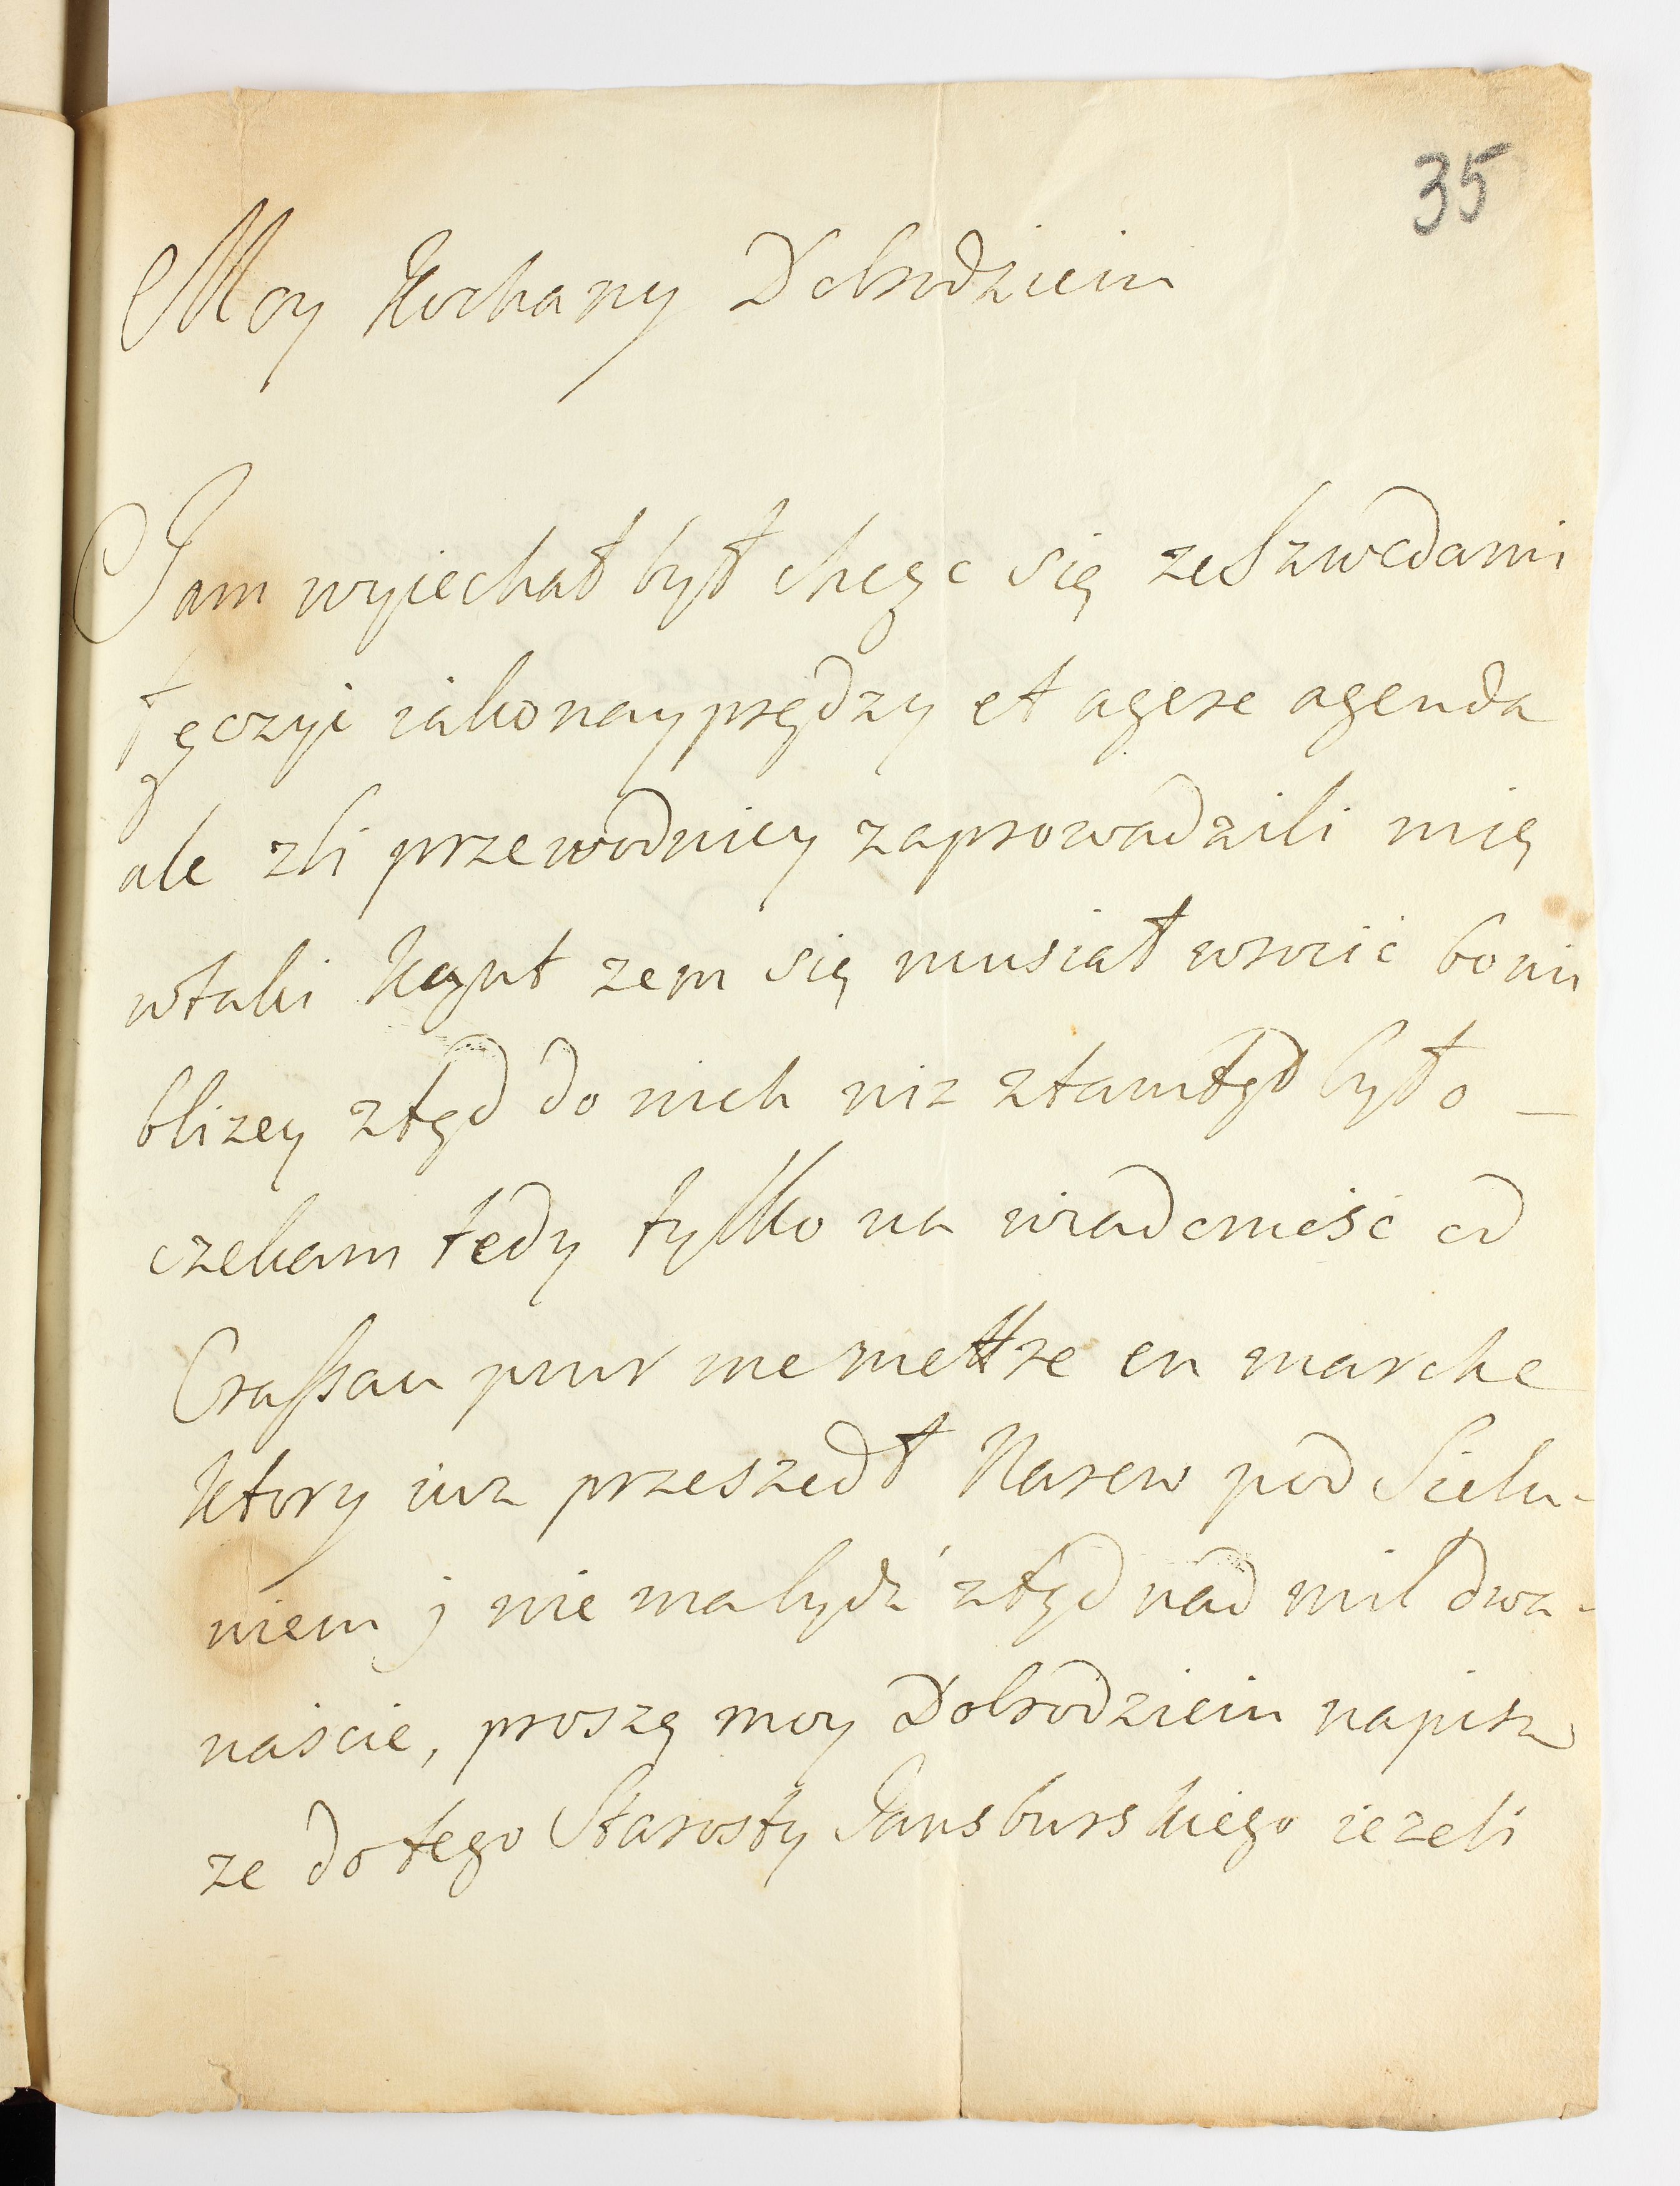 35
Moy Kochany Dobrodzieiu
Jam wyiechał był chcąc się ze Szwedami
łączyć iako nayprędzy et agere agenda
ale zli przewodnicy zaprowadzili mię
wtaki kąnt zem się musiał wrocić bo mi
blizey ztąd do nich niz ztamtąd było –
czekam tedy tylko na wiadomość od
Crassau pour me mettre en marche
ktory iuz przeszedł Narew pod Sielu-
niem j nie ma bydź ztąd nad mil dwa-
naście, proszę moy Dobrodzieiu napisz
ze do tego Starosty Jansburskiego iezeli